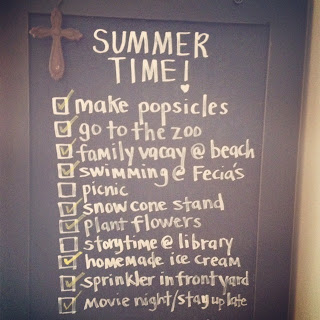 SUMMER
TIME!
make popsicles
go to the zoo
family vacay @ beach
swimming @ Fecia's
picnic
snow cone stand
plant flowers
storytime @ library
homemade ice cream
sprinkler in front yard
movie night/stay up late